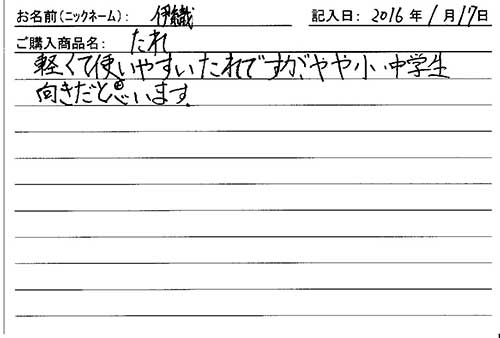 お名前(ニックネーム): 伊織 記入日: 2016年1月17日
ご購入商品名: たれ
軽くて使いやすいたれですがやや小・中学生
向きだと思います。